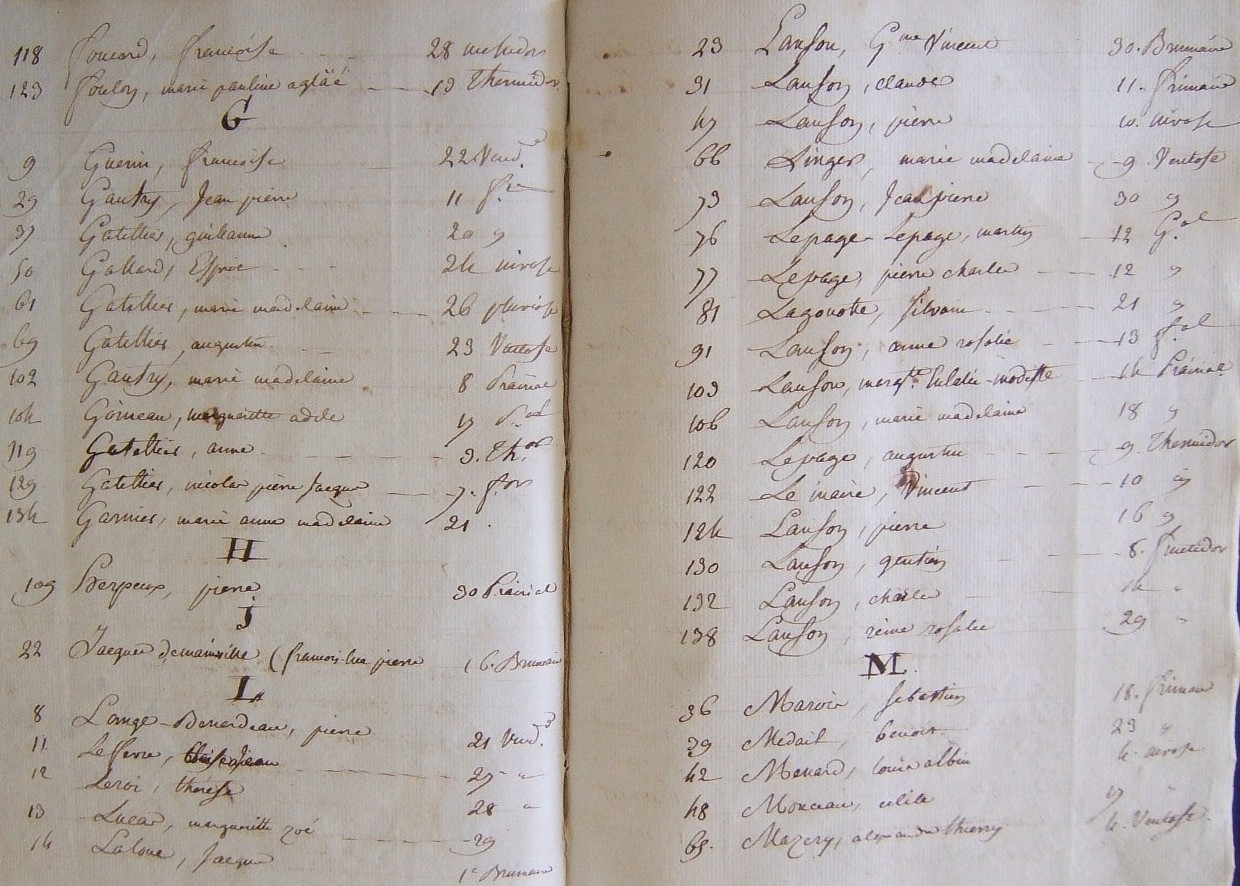 118 Foucard, francoise 28 messidor
123 Foulon, marie pauline aglaé 13 Thermidor
G
9 Guerin, francoise 22 Vend.e
29 Gautry, Jean pierre 11 f.re
37 Gatellier, guillaume 20 "
50 Gallard, Esprit 24 nivose
61 Gatellier, marie madelaine 26 pluviose
69 Gatellier, augustin 23 Ventose
102 Gautry, marie madelaine 8 Prairial
104 Goineau, marguerite adele 17 P.al
119 Gatellier, anne 9. Th.or
129 Gatellier, nicolas pierre Jacques 7. f.or
134 Garnier, marie anne madelaine 21
H
109 Herpeux, pierre 30 Prairial
J
22 Jacques demainville (francois luc pierre 16. Brumaire
L
8 Lange-Benardeau, pierre 21 Vend.e
11 Lefevre, 27 "
12 Leroi, therese 28 "
13 Lucas, margueritte zoé 29
14 Laloue, Jacques 1er Brumaire
23 Lanson, G.me Vincent 30. Brumaire
31 Lanson, claude 11. frimaire
47 Lanson, pierre 10. nivose
66 Linger, marie madelaine 9. Ventose
73 Lanson, Jean pierre 30 "
76 Lepage-Lepage, martin 12 G.al
77 Lepage, pierre charles 12 "
81 Lagoutte, Silvain 21 "
91 Lanson, anne rosalie 13 f.al
103 Lanson, marg.te Eulalie-modeste 14 Prairial
106 Lanson, marie madelaine 18 "
120 Lepage, augustin 9. Thermidor
122 Le maire, Vincent 10 "
124 Lanson, pierre 16 "
130 Lanson, gentien 8. fructidor
132 Lanson, charles 14 "
138 Lanson, reine rosalie 29 "
M
36 Maroin, sebastien 18. frimaire
39 Medail, benoit 23 "
42 Menard, louis albin 4. nivose
48 Monceau, 17 "
65. Mazery, alexandre thierry 4. Ventose